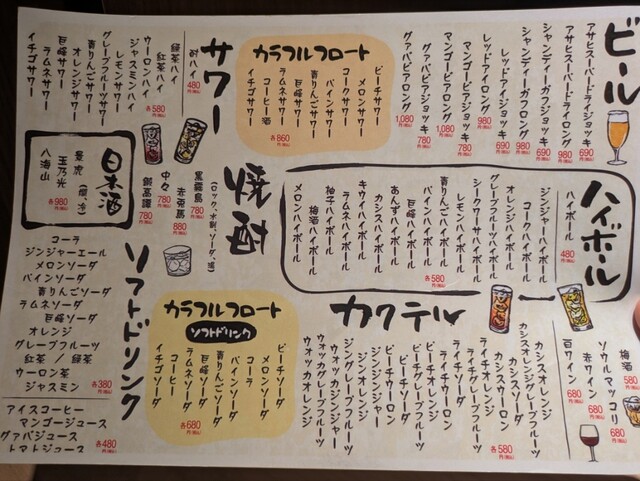 ビール
アサヒスーパードライジョッキ 690円(税込)
アサヒスーパードライロング 980円(税込)
シャンディーガフジョッキ 690円(税込)
シャンディーガフロング 980円(税込)
レッドアイジョッキ 690円(税込)
レッドアイロング 980円(税込)
マンゴービアジョッキ 780円(税込)
マンゴービアロング 1,080円(税込)
グァバビアジョッキ 780円(税込)
グァバビアロング 1,080円(税込)
カラフルフロート
ピーチサワー
メロンサワー
コークサワー
パインサワー
青りんごサワー
巨峰サワー
ラムネサワー
コーヒー酒
イチゴサワー
各860円(税込)
サワー
酎ハイ 480円(税込)
緑茶ハイ
紅茶ハイ
ウーロンハイ
ジャスミンハイ
レモンサワー
グレープフルーツサワー
青りんごサワー
オレンジサワー
巨峰サワー
ラムネサワー
イチゴサワー
各580円(税込)
ハイボール
ハイボール 480円(税込)
ジンジャーハイボール
コークハイボール
オレンジハイボール
グレープフルーツハイボール
シークワーサーハイボール
レモンハイボール
青りんごハイボール
パインハイボール
巨峰ハイボール
あんずハイボール
カシスハイボール
キウイハイボール
ラムネハイボール
柚子ハイボール
梅酒ハイボール
メロンハイボール
各580円(税込)
焼酒
(ロック、水割、ソーダ、湯)
黒霧島 780円(税込)
赤兎馬 880円(税込)
中々 780円(税込)
銀高譚 780円(税込)
日本酒
景虎(燗、冷)
玉乃光
八海山
各980円(税込)
梅酒 580円(税込)
ソウルマッコリ 680円(税込)
赤ワイン 680円(税込)
百ワイン 680円(税込)
カクテル
カシスオレンジ
カシスグレープフルーツ
カシスオレンジ
カシスウーロン
カシスソーダ
ライチオレンジ
ライチグレープフルーツ
ライチソーダ
ライチウーロン
ピーチオレンジ
ピーチグレープフルーツ
ピーチソーダ
ピーチウーロン
ジンジンジャー
ジンオレンジ
ジングレープフルーツ
ウォッカジンジャー
ウォッカグレープフルーツ
ウォッカオレンジ
各580円(税込)
カラフルフロート
ソフトドリンク
ピーチソーダ
メロンソーダ
コーラ
パインソーダ
青りんごソーダ
巨峰ソーダ
ラムネソーダ
コーヒー
イチゴソーダ
各680円(税込)
ソフトドリンク
コーラ
ジンジャーエール
メロンソーダ
パインソーダ
青りんごソーダ
ラムネソーダ
巨峰ソーダ
オレンジ
グレープフルーツ
紅茶 / 緑茶
ウーロン茶
ジャスミン
各380円(税込)
アイスコーヒー
マンゴージュース
グァバジュース
トマトジュース
各480円(税込)